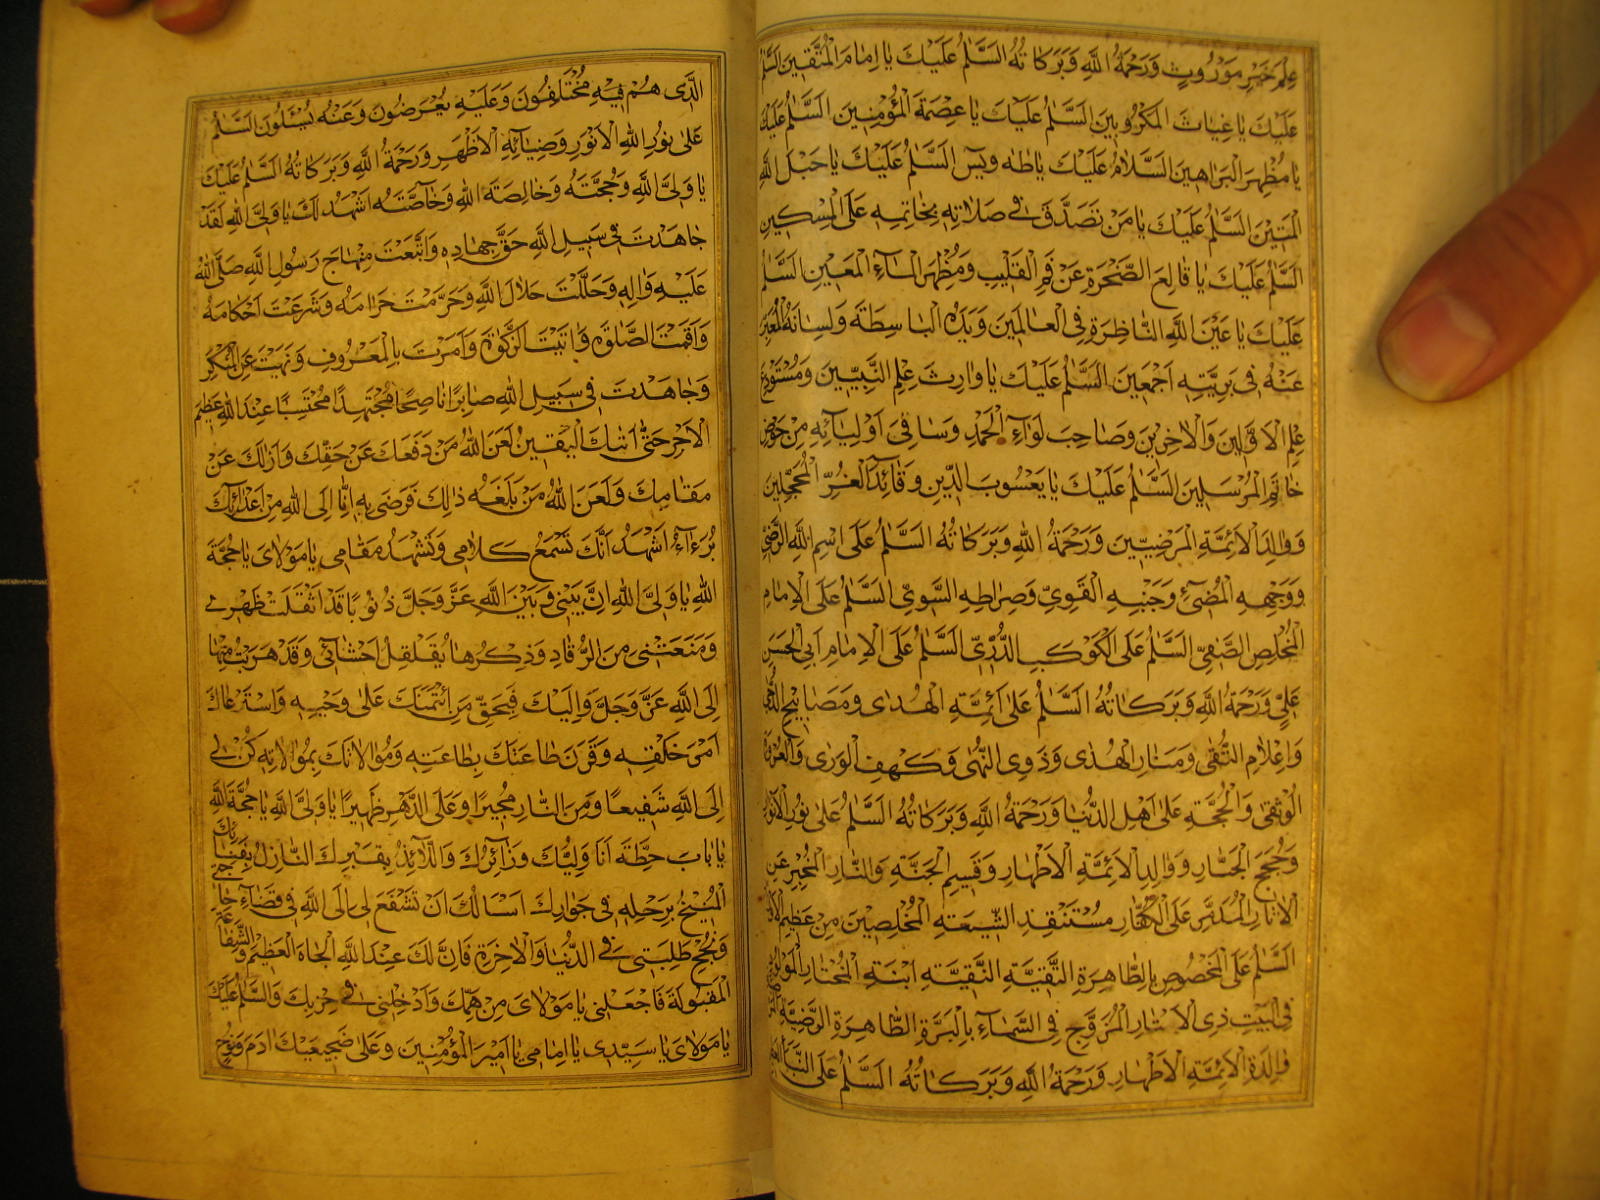 عِلْمِ خَيْرِ مَوْرُوثٍ وَرَحْمَةُ اللّٰهِ وَبَرَكاتُهُ اَلسَّلٰمُ عَلَيْكَ يا اِمامَ الْمُتَّقينَ السَّلٰمُ
عَلَيْكَ يا غِياثَ الْمَكْرُوبينَ السَّلٰمُ عَلَيْكَ يا عِصْمَةَ الْمُؤْمِنينَ اَلسَّلٰمُ عَلَيْكَ
يا مُظْهِرَ الْبَراهينَ اَلسَّلامُ عَلَيْكَ ياطٰه وَيٰس اَلسَّلٰمُ عَلَيْكَ يا حَبْلَ اللّٰهِ
الْمَتينَ اَلسَّلٰمُ عَلَيْكَ يا مَنْ تَصَدَّقَ في صَلاتِهِ بِخاتِمِهِ عَلَى الْمِسْكينِ
اَلسَّلٰمُ عَلَيْكَ يا قالِعَ الصَّخْرَةِ عَنْ فَمِ الْقَليبِ وَمُظْهِرَ الْمآءِ الْمَعينِ اَلسَّلٰمُ
عَلَيْكَ يا عَيْنَ اللّٰهِ النّاظِرَةِ فِي الْعالَمينَ وَيَدَهُ الْباسِطَةَ وَلِسانَهُ الْمُعَبِّرَ
عَنْهُ في بَرِيَّتِهِ اَجْمَعينَ اَلسَّلٰمُ عَلَيْكَ يا وارِثَ عِلْمِ النَّبِيّينَ وَمُسْتَوْدَعَ
عِلْمِ الْاَوَّلينَ وَالْاٰخِرينَ وَصاحِبَ لِوآءِ الْحَمْدِ وَساقِيَ اَوْلِيآئِهِ مِنْ حَوْضِ
خاتَمِ الْمُرْسَلينَ اَلسَّلٰمُ عَلَيْكَ يا يَعْسُوبَ الدّينِ وَقآئِدَ الْغُرِّ الْمُحَجَّلينَ
وَوالِدَ الْاَئِمَّةِ الْمَرْضِيّينَ وَرَحْمَةُ اللّٰهِ وَبَرَكاتُهُ اَلسَّلٰمُ عَلَى اسْمِ اللّٰهِ الرَّضِيِّ
وَوَجْهِهِ الْمُضيٓءِ وَجَنْبِهِ الْقَوِيِّ وَصِراطِهِ السَّوِيِّ السَّلٰمُ عَلَى الْاِمامِ
الْمُخْلِصِ الصَّفِيِّ السَّلٰمُ عَلَى الْكَوْكَبِ الدُّرِّيِّ اَلسَّلٰمُ عَلَى الْاِمامِ اَبِي الْحَسَنِ
عَلِيٍّ وَرَحْمَةُ اللّٰهِ وَبَرَكاتُهُ اَلسَّلٰمُ عَلٰى اَئِمَّةِ الْهُدٰى وَمَصابيحِ الدُّجٰى
وَاَعْلامِ التُّقٰى وَمَنارِ الْهُدٰى وَذَوِي النُّهٰى وَكَهْفِ الْوَرٰى وَالْعُرْوَةِ
الْوُثْقٰى وَالْحُجَّةِ عَلٰى اَهْلِ الدُّنْيا وَرَحْمَةُ اللّٰهِ وَبَرَكاتُهُ اَلسَّلٰمُ عَلٰى نُورِ الْاَنْوارِ
وَحُجَجِ الْجَبّارِ وَوالِدِ الْاَئِمَّةِ الْاَطْهارِ وَقَسيمِ الْجَنَّةِ وَالنّارِ الْمُخْبِرِ عَنِ
الْاٰثارِ الْمُدَمِّرِ عَلَى الْكُفّارِ مُسْتَنْقِذِ الشّيعَةِ الْمُخْلِصينَ مِنْ عَظيمِ الْاَوْزارِ
اَلسَّلٰمُ عَلَى الْمَخْصُوصِ بِالطّاهِرَةِ التَّقِيَّةِ النَّقِيَّةِ ابْنَةِ الْمُخْتارِ الْمَوْلُودِ
فِي الْبَيْتِ ذِي الْاَسْتارِ الْمُزَوَّجِ فِي السَّمآءِ بِالْبَرَّةِ الطّاهِرَةِ الرَّضِيَّةِ
والِدَةِ الْاَئِمَّةِ الْاَطْهارِ وَرَحْمَةُ اللّٰهِ وَبَرَكاتُهُ اَلسَّلٰمُ عَلَى النَّبَأِ
الَّذي هُمْ فيهِ مُخْتَلِفُونَ وَعَلَيْهِ يُعْرَضُونَ وَعَنْهُ يُسْئَلُونَ السَّلٰمُ
عَلٰى نُورِ اللّٰهِ الْاَنْوَرِ وَضِيآئِهِ الْاَظْهَرِ وَرَحْمَةُ اللّٰهِ وَبَرَكاتُهُ اَلسَّلٰمُ عَلَيْكَ
يا وَلِيَّ اللّٰهِ وَحُجَّتَهُ وَخالِصَةَ اللّٰهِ وَخآصَّتَهُ اَشْهَدُ لَكَ يا وَلِيَّ اللّٰهِ لَقَدْ
جاهَدْتَ في سَبيلِ اللّٰهِ حَقَّ جِهادِهِ وَاتَّبَعْتَ مِنْهاجَ رَسُولِ اللّٰهِ صَلَّى اللّٰهُ
عَلَيْهِ وَاٰلِهِ وَحَلَّلْتَ حَلالَ اللّٰهِ وَحَرَّمْتَ حَرامَهُ وَشَرَعْتَ اَحْكامَهُ
وَاَقَمْتَ الصَّلٰوةَ وَاٰتَيْتَ الزَّكٰوةَ وَاَمَرْتَ بِالْمَعْرُوفِ وَنَهَيْتَ عَنِ الْمُنْكَرِ
وَجاهَدْتَ في سَبيلِ اللّٰهِ صابِرًا ناصِحًا مُجْتَهِدًا مُحْتَسِبًا عِنْدَ اللّٰهِ عَظيمَ
الْاَجْرِ حَتّٰى اَتٰيكَ الْيَقينُ لَعَنَ اللّٰهُ مَنْ دَفَعَكَ عَنْ حَقِّكَ وَاَزالَكَ عَنْ
مَقامِكَ وَلَعَنَ اللّٰهُ مَنْ بَلَغَهُ ذٰلِكَ فَرَضِيَ بِهِ اِنّا اِلَى اللّٰهِ مِنْ اَعْدآئِكَ
بُرَءٰٓآءُ اَشْهَدُ اَنَّكَ تَسْمَعُ كَلامي وَتَشْهَدُ مَقامي يا مَوْلايَ يا حُجَّةَ
اللّٰهِ يا وَلِيَّ اللّٰهِ اِنَّ بَيْني وَبَيْنَ اللّٰهِ عَزَّ وَجَلَّ ذُنُوبًا قَدْ اَثْقَلَتْ ظَهْري
وَمَنَعَتْني مِنَ الرُّقادِ وَذِكْرُها يُقَلْقِلُ اَحْشآئي وَقَدْ هَرَبْتُ مِنْها
اِلَى اللّٰهِ عَزَّ وَجَلَّ وَاِلَيْكَ فَبِحَقِّ مَنِ ائْتَمَنَكَ عَلٰى وَحْيِهِ وَاسْتَرْعاكَ
اَمْرَ خَلْقِهِ وَقَرَنَ طاعَتَكَ بِطاعَتِهِ وَمُوالاتَكَ بِمُوالاتِهِ كُنْ لي
اِلَى اللّٰهِ شَفيعًا وَمِنَ النّارِ مُجيرًا وَعَلَى الدَّهْرِ ظَهيرًا يا وَلِيَّ اللّٰهِ يا حُجَّةَ اللّٰهِ
يا بابَ حِطَّةَ اَنَا وَلِيُّكَ وَزآئِرُكَ وَاللّآئِذُ بِقَبْرِكَ النّازِلُ بِفِنآئِكَ
الْمُنيخُ بِرَحْلِهِ في جِوارِكَ اَسْاَلُكَ اَنْ تَشْفَعَ لي اِلَى اللّٰهِ في قَضآءِ حاجَتي
وَنُجْحِ طَلِبَتي فِي الدُّنْيا وَالْاٰخِرَةِ فَاِنَّ لَكَ عِنْدَ اللّٰهِ الْجاهَ الْعَظيمَ وَالشَّفاعَةَ
الْمَقْبُولَةَ فَاجْعَلْني يا مَوْلايَ مِنْ هَمِّكَ وَاَدْخِلْني في حِزْبِكَ وَالسَّلٰمُ عَلَيْكَ
يا مَوْلايَ يا سَيِّدي يا اِمامي يا اَميرَ الْمُؤْمِنينَ وَعَلٰى ضَجيعَيْكَ اٰدَمَ وَنُوحٍ